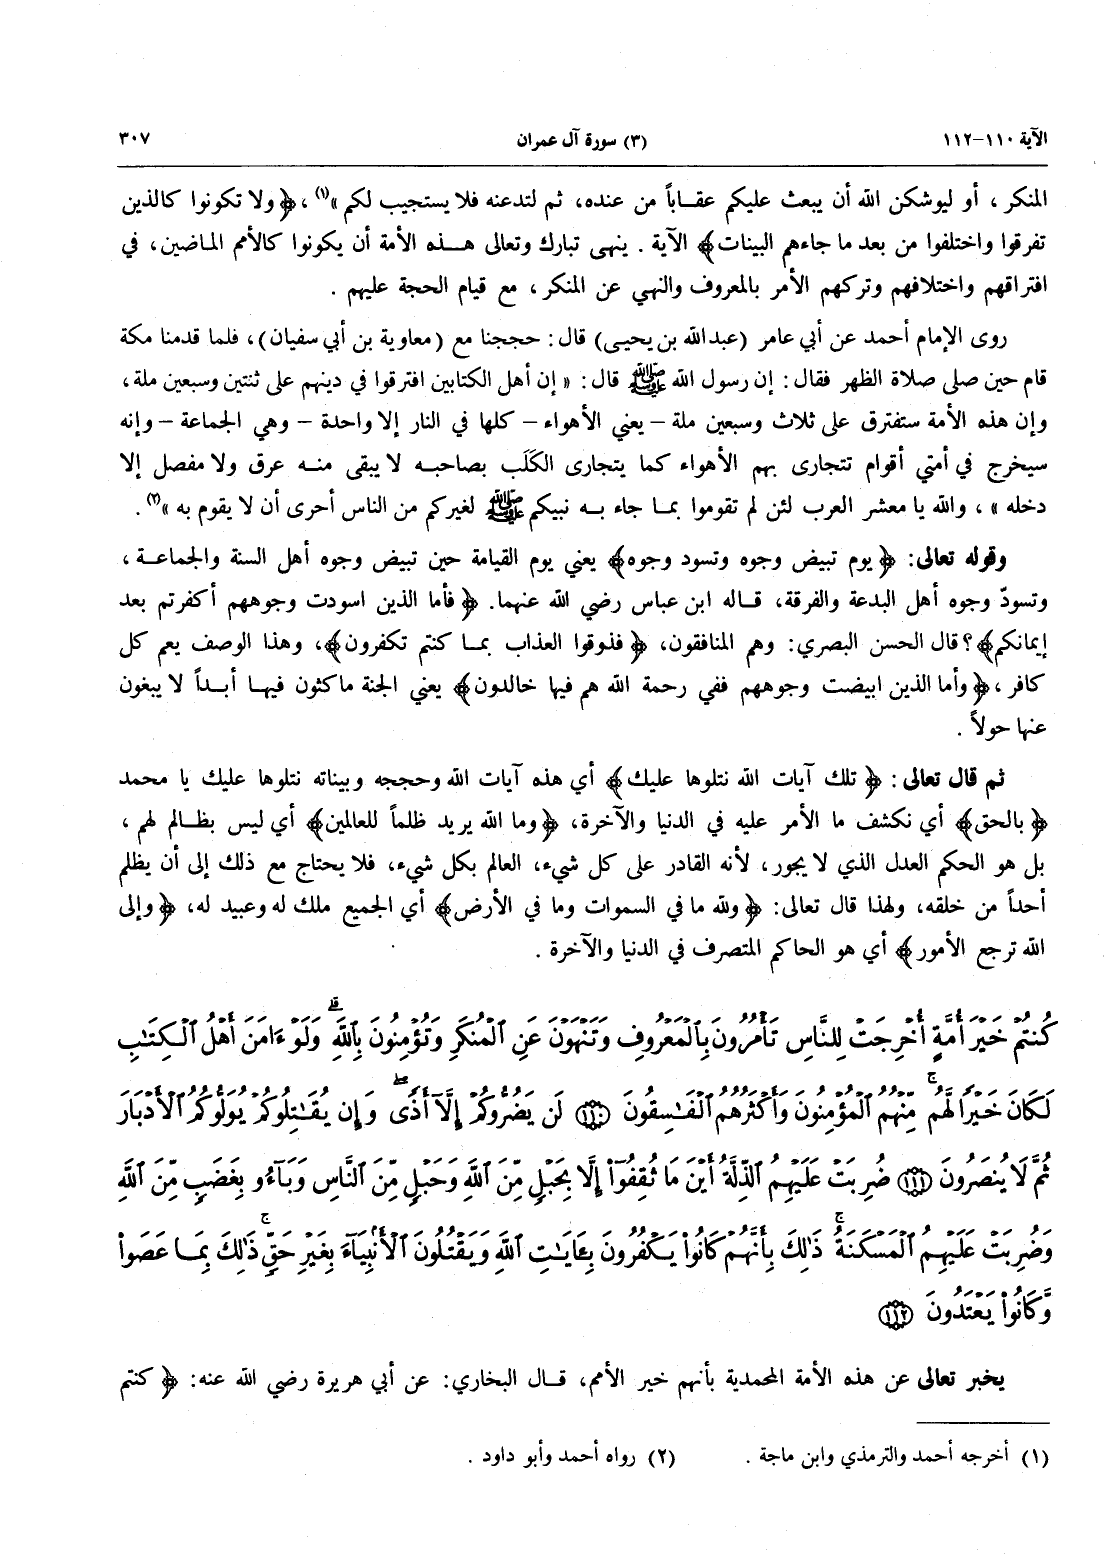 الآية ١١٠–١١٢ (٣) سورة آل عمران ٣٠٧
المنكر ، أو ليوشكن الله أن يبعث عليكم عقاباً من عنده، ثم لتدعنه فلا يستجيب لكم »(١) ، ﴿ ولا تكونوا كالذين
تفرقوا واختلفوا من بعد ما جاءهم البينات﴾ الآية . ينهى تبارك وتعالى هـذه الأمة أن يكونوا كالأمم الماضين، في
افتراقهم واختلافهم وتركهم الأمر بالمعروف والنهي عن المنكر ، مع قيام الحجة عليهم .
روى الإمام أحمد عن أبي عامر (عبدالله بن يحيى) قال: حججنا مع (معاوية بن أبي سفيان)، فلما قدمنا مكة
قام حين صلى صلاة الظهر فقال: إن رسول الله ﷺ قال: « إن أهل الكتابين افترقوا في دينهم على ثنتين وسبعين ملة،
وإن هذه الأمة ستفترق على ثلاث وسبعين ملة – يعني الأهواء – كلها في النار إلا واحدة – وهي الجماعة – وإنه
سيخرج في أمتي أقوام تتجارى بهم الأهواء كما يتجارى الكَلَب بصاحبه لا يبقى منه عرق ولا مفصل إلا
دخله » ، والله يا معشر العرب لئن لم تقوموا بما جاء به نبيكم ﷺ لغيركم من الناس أحرى أن لا يقوم به »(٢) .
وقوله تعالى: ﴿ يوم تبيض وجوه وتسود وجوه﴾ يعني يوم القيامة حين تبيض وجوه أهل السنة والجماعة ،
وتسودّ وجوه أهل البدعة والفرقة، قاله ابن عباس رضي الله عنهما. ﴿ فأما الذين اسودت وجوههم أكفرتم بعد
إيمانكم﴾؟ قال الحسن البصري: وهم المنافقون، ﴿ فذوقوا العذاب بما كنتم تكفرون﴾، وهذا الوصف يعم كل
كافر ، ﴿ وأما الذين ابيضت وجوههم ففي رحمة الله هم فيها خالدون﴾ يعني الجنة ماكثون فيها أبداً لا يبغون
عنها حولاً .
ثم قال تعالى: ﴿ تلك آيات الله نتلوها عليك﴾ أي هذه آيات الله وحججه وبيناته نتلوها عليك يا محمد
﴿ بالحق﴾ أي نكشف ما الأمر عليه في الدنيا والآخرة، ﴿وما الله يريد ظلماً للعالمين﴾ أي ليس بظالم لهم ،
بل هو الحكم العدل الذي لا يجور، لأنه القادر على كل شيء، العالم بكل شيء، فلا يحتاج مع ذلك إلى أن يظلم
أحداً من خلقه، ولهذا قال تعالى: ﴿ ولله ما في السموات وما في الأرض﴾ أي الجميع ملك له وعبيد له، ﴿ وإلى
الله ترجع الأمور﴾ أي هو الحاكم المتصرف في الدنيا والآخرة .
كُنتُمْ خَيْرَ أُمَّةٍ أُخْرِجَتْ لِلنَّاسِ تَأْمُرُونَ بِٱلْمَعْرُوفِ وَتَنْهَوْنَ عَنِ ٱلْمُنكَرِ وَتُؤْمِنُونَ بِٱللَّهِ ۗ وَلَوْ ءَامَنَ أَهْلُ ٱلْكِتَٰبِ
لَكَانَ خَيْرًا لَّهُم ۚ مِّنْهُمُ ٱلْمُؤْمِنُونَ وَأَكْثَرُهُمُ ٱلْفَٰسِقُونَ ١١٠ لَن يَضُرُّوكُمْ إِلَّآ أَذًى ۖ وَإِن يُقَٰتِلُوكُمْ يُوَلُّوكُمُ ٱلْأَدْبَارَ
ثُمَّ لَا يُنصَرُونَ ١١١ ضُرِبَتْ عَلَيْهِمُ ٱلذِّلَّةُ أَيْنَ مَا ثُقِفُوٓا۟ إِلَّا بِحَبْلٍ مِّنَ ٱللَّهِ وَحَبْلٍ مِّنَ ٱلنَّاسِ وَبَآءُو بِغَضَبٍ مِّنَ ٱللَّهِ
وَضُرِبَتْ عَلَيْهِمُ ٱلْمَسْكَنَةُ ۚ ذَٰلِكَ بِأَنَّهُمْ كَانُوا۟ يَكْفُرُونَ بِـَٔايَٰتِ ٱللَّهِ وَيَقْتُلُونَ ٱلْأَنۢبِيَآءَ بِغَيْرِ حَقٍّ ۚ ذَٰلِكَ بِمَا عَصَوا۟
وَّكَانُوا۟ يَعْتَدُونَ ١١٢
يخبر تعالى عن هذه الأمة المحمدية بأنهم خير الأمم، قال البخاري: عن أبي هريرة رضي الله عنه: ﴿ كنتم
(١) أخرجه أحمد والترمذي وابن ماجة . (٢) رواه أحمد وأبو داود .